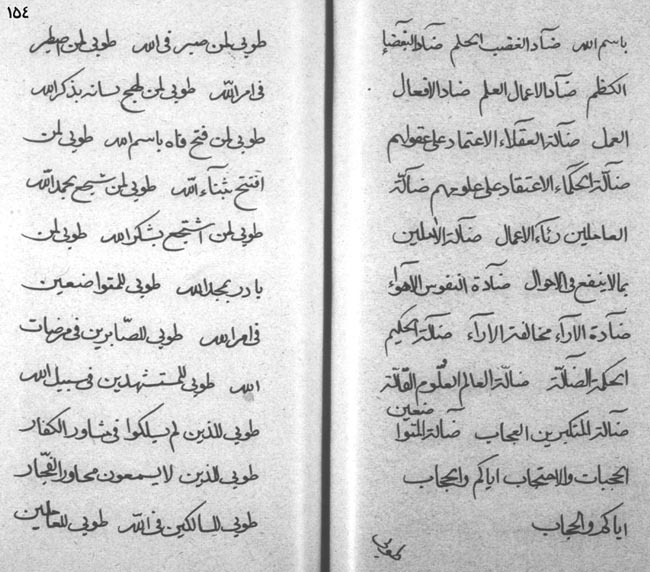 باسم الله ضآد الغضب الحلم ضآد البغضآ
الكظم ضآد الاعمال العلم ضاد الافعال
العمل ضآلة العقلاء الاعتماد على عقولهم
ضآلة الحكماء الاعتقاد على علومهم ضآلة
العاملين رئاء الاعمال ضآلة الاملين
بما لا ينفع فى الاحوال ضآدة النفوس الاهواء
ضآدة الآراء مخالفة الآراء ضآلة الحكيم
الحكمة الضآلّة ضالّة العالم العلوم القالّة
ضآلة المتكبرين العجاب ضآلة المتوا ضعين
الحجبات والاحتجاب اياكم والحجاب
اياكم والحجاب
طوبى
١٥٤
طوبى لمن صبر فى الله طوبى لمن اصطبر
فى امر الله طوبى لمن لهج لسانه بذكر الله
طوبى لمن فتح فاه باسم الله طوبى لمن
افتتح بثنآء الله طوبى لمن شجع بحمد الله
طوبى لمن اشتجع بشكر الله طوبى لمن
بادر بمجد الله طوبى للمتواضعين
فى امر الله طوبى للصّابرين فى مرضات
الله طوبى للمستشهدين فى سبيل الله
طوبى للذين لم يسلكوا فى مشاور الكفار
طوبى للذين لا يسمعون محاور الفجّار
طوبى للسالكين فى الله طوبى للعاملين